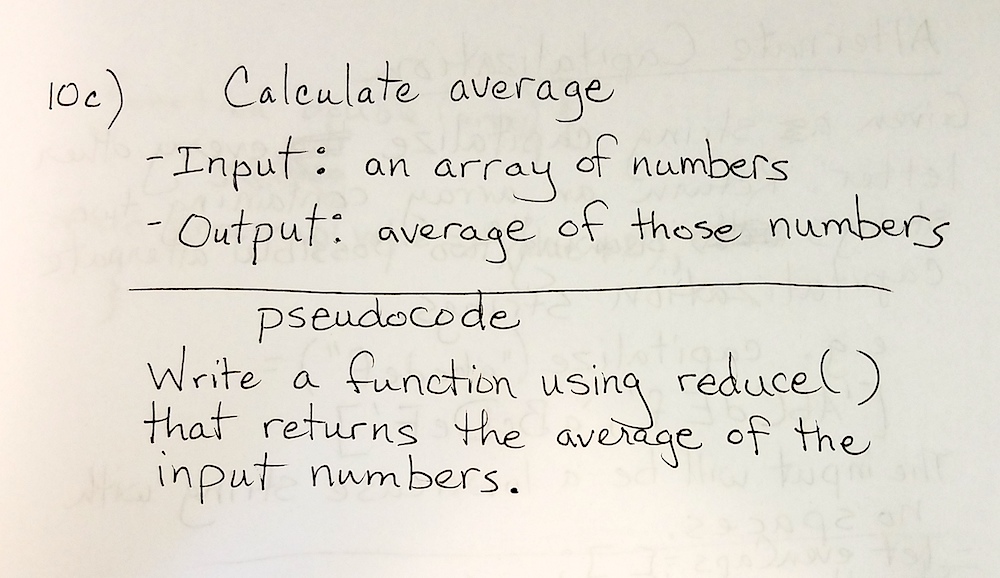 10c) Calculate average
- Input: an array of numbers
- Output: average of those numbers
pseudocode
Write a function using reduce()
that returns the average of the
input numbers.